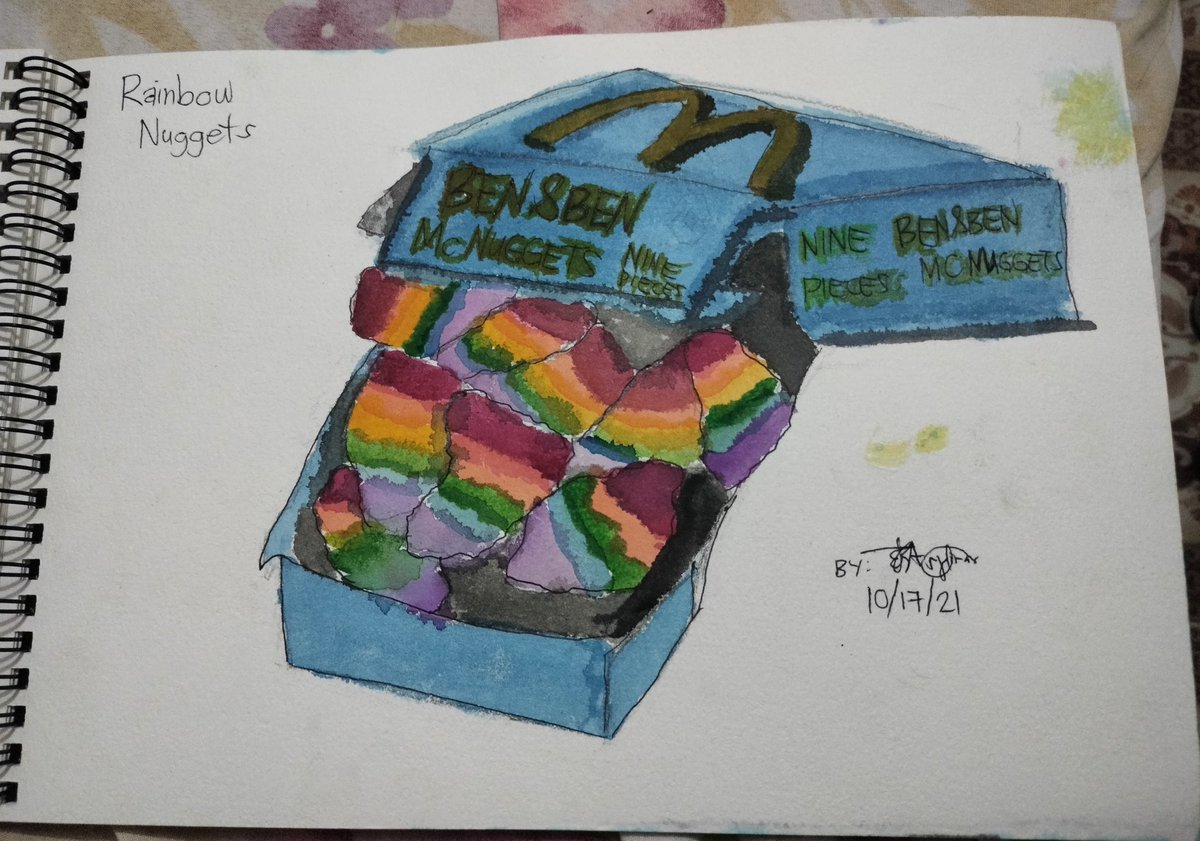 Rainbow
Nuggets
BEN&BEN
MCNUGGETS NINE
PIECES
NINE BEN&BEN
PIECES MCNUGGETS
BY:
10/17/21